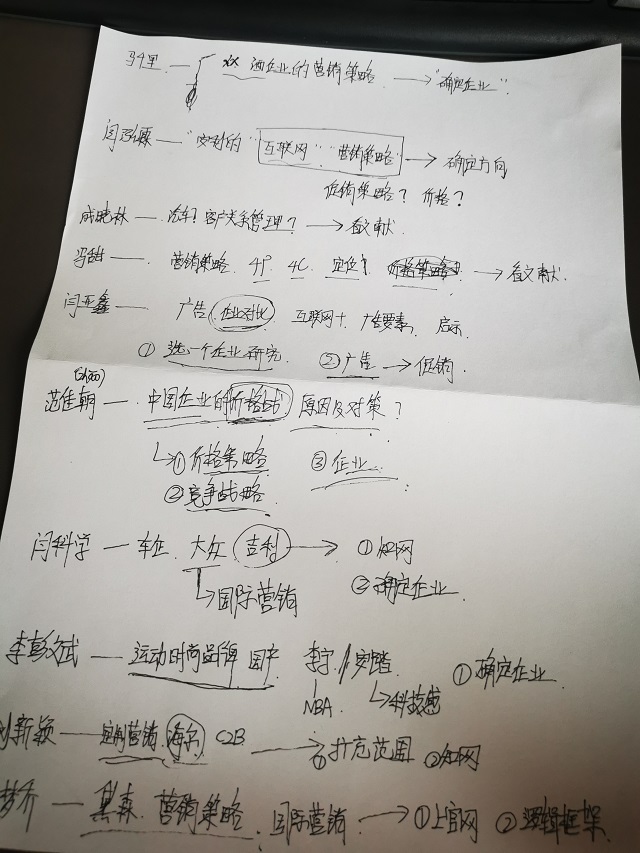 冯千里 — xx 酒企业的营销策略 → "确定企业"
闫孙 — "安利的" "互联网" "营销策略" → 确定方向
促销策略? 价格?
成晓林 — 汽车? 客户关系管理? → 看文献.
冯甜 — 营销策略 4P 4C 定位? 价格策略 → 看文献.
闫亚鑫 — 广告 企业对比 互联网+ 广告要素, 启示
① 选一个企业研究 ② 广告 → 促销
范佳朝 — 中国企业的价格战 原因及对策?
↳ ① 价格策略 ③ 企业
② 竞争战略
闫科学 — 车企. 大众 吉利 → ① 知网
↳ 国际营销 ② 确定企业
李彭文武 — 运动时尚品牌 国产 李宁 / 安踏 ① 确定企业
NBA. ↳ 科技感
刘新颖 — 定制营销. 海尔 C2B → ① 扩充范围 ② 知网
梦乔 — 营销策略. 国际营销 → ① 上官网 ② 逻辑框架.